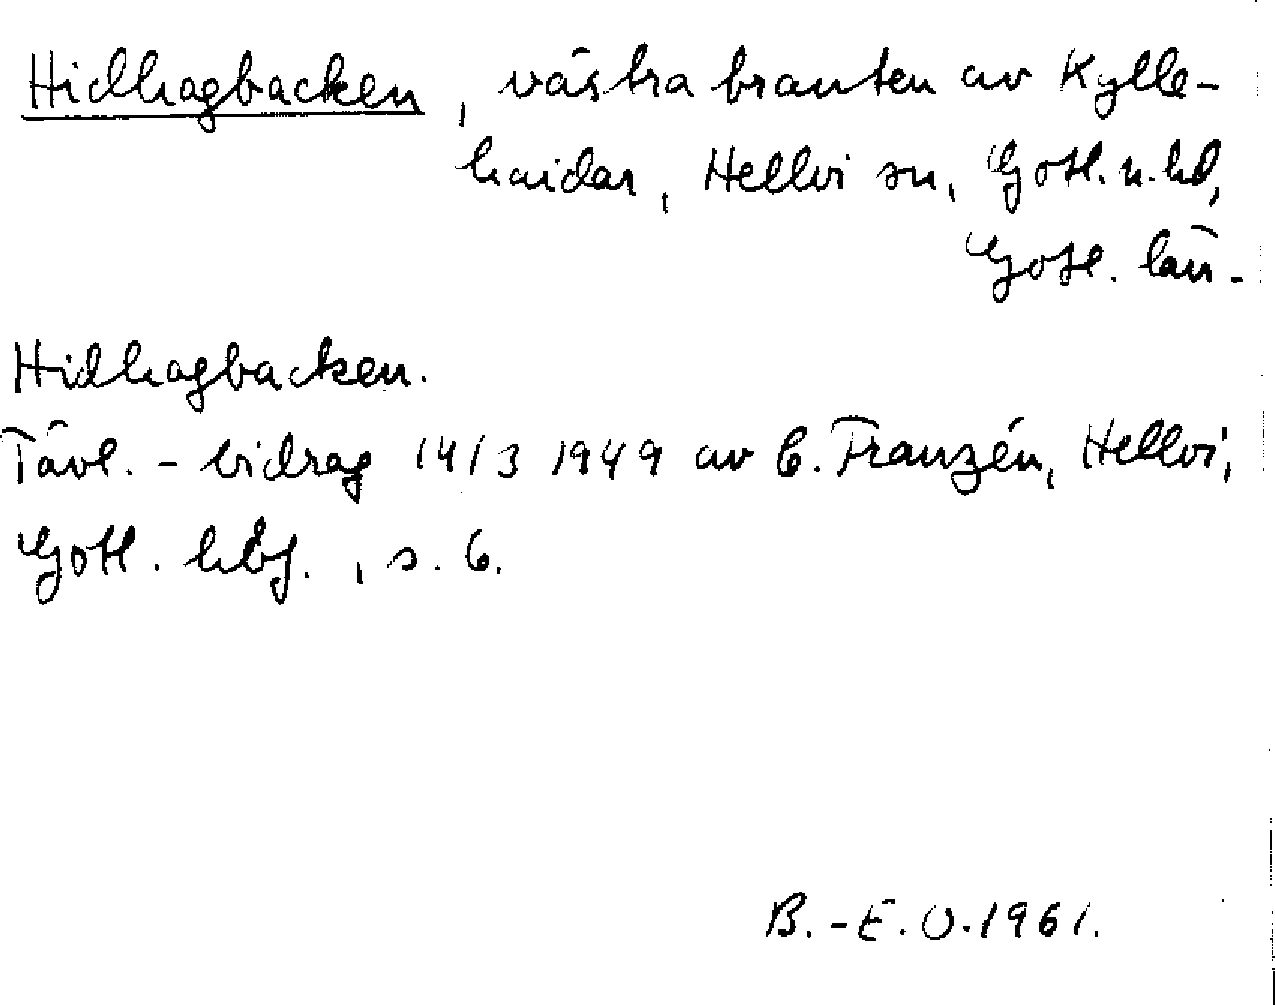 Hidhagbacken, västra branten av Kylle-
haidar, Hellvi sn, Gotl. n. hd,
Gotl. län.
Hidhagbacken.
Tävl. - bidrag 14/3 1949 av C. Franzén, Hellvi,
Gotl. hbf., s. 6.
B.-E. O. 1961.